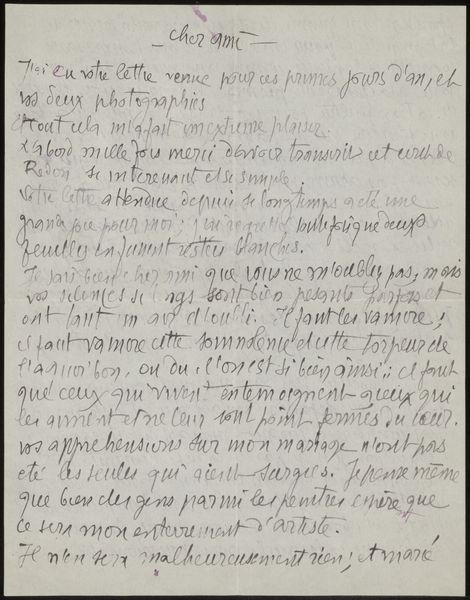 _ cher ami _
J'ai eu votre lettre venue pour ces primes jours d'an, et
vos deux photographies
et tout cela m'a fait un extreme plaisir.
d'abord mille fois merci d'avoir transcrit cet ecrit de
Redon si interessant et si simple.
Votre lettre attendue depuis si longtemps a été une
grande joie pour moi; j'ai regretté toutefois que deux
feuilles en fussent restées blanches.
Je sais bien cher ami que vous ne m'oubliez pas, mais
vos silences si longs sont bien pesants parfois et
ont tant un air d'oubli. Il faut les vaincre;
il faut vaincre cette somnolence et cette torpeur de
l'à quoi bon, ou du: l'on est si bien ainsi; il faut
que ceux qui vivent en temoignent à ceux qui
les aiment et ne leur sont point fermés du cœur.
Vos apprehensions sur mon mariage n'ont pas
eté les seules qui aient surgies. Je pense même
que bien des gens parmi les peintres que
ce sera mon enterrement d'artiste.
Il n'en sera malheureusement rien; et marié